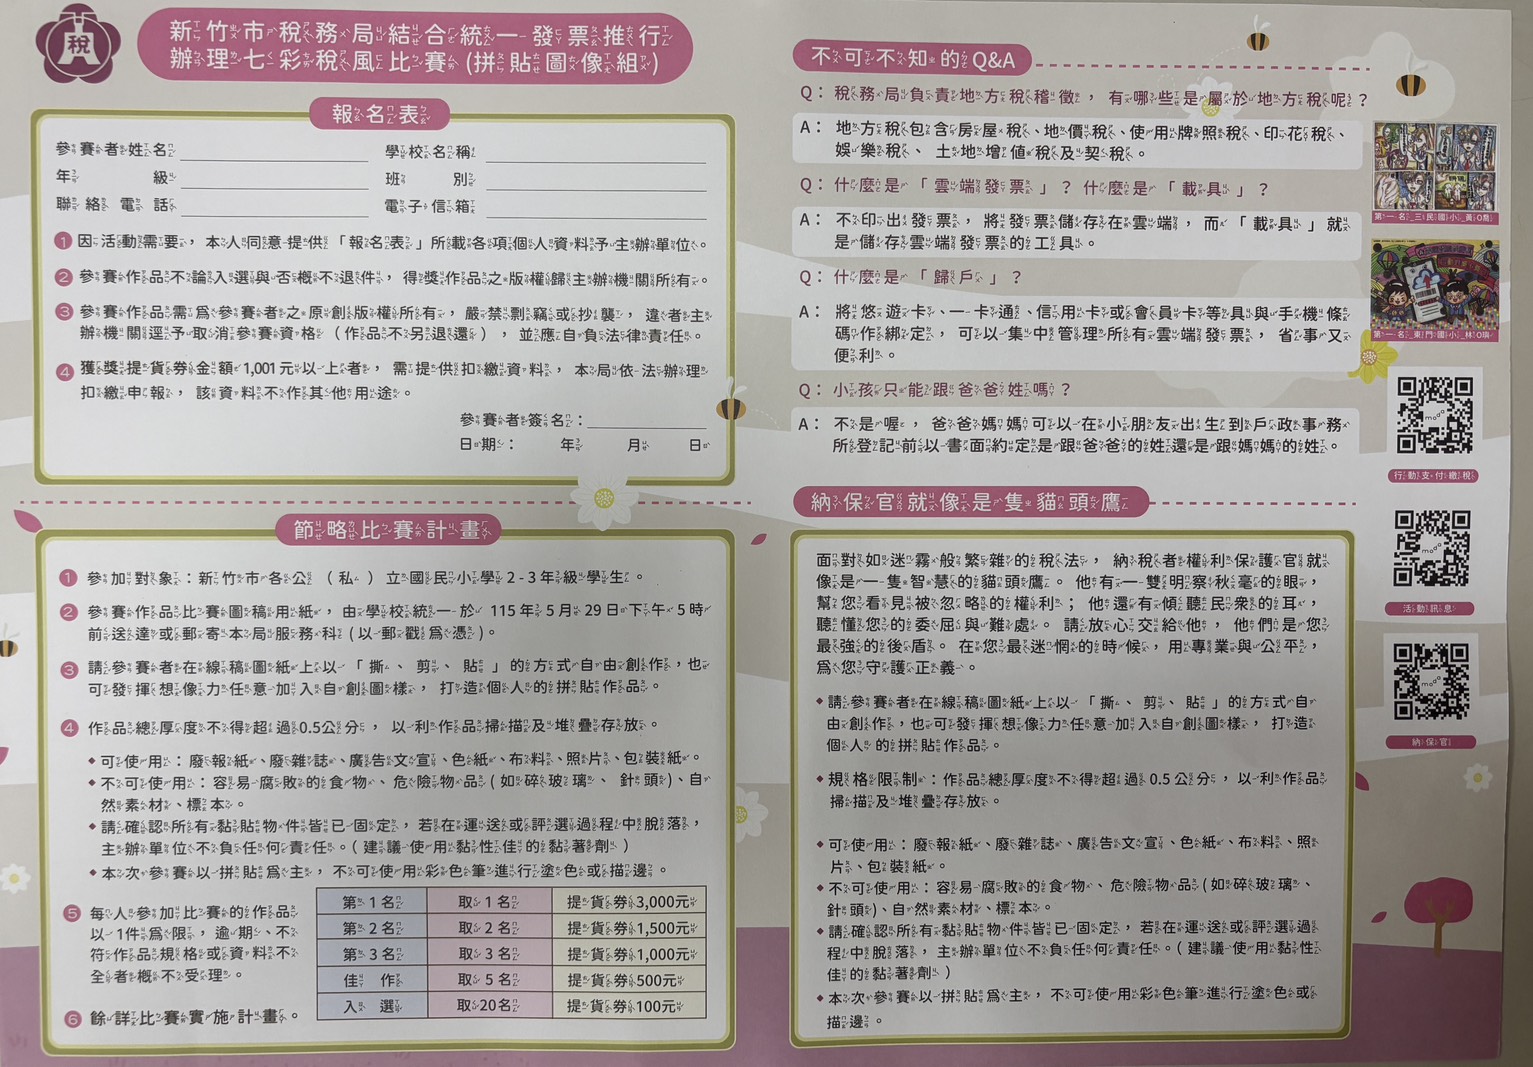 稅
新竹市稅務局結合統一發票推行
辦理七彩稅風比賽(拼貼圖像組)
報名表
參賽者姓名 學校名稱
年級 班別
聯絡電話 電子信箱
1 因活動需要，本人同意提供「報名表」所載各項個人資料予主辦單位。
2 參賽作品不論入選與否概不退件，得獎作品之版權歸主辦機關所有。
3 參賽作品需為參賽者之原創版權所有，嚴禁剽竊或抄襲，違者主
辦機關逕予取消參賽資格（作品不另退還），並應自負法律責任。
4 獲獎提貨券金額1,001元以上者，需提供扣繳資料，本局依法辦理
扣繳申報，該資料不作其他用途。
參賽者簽名：
日期： 年 月 日
節略比賽計畫
1 參加對象：新竹市各公（私）立國民小學2-3年級學生。
2 參賽作品比賽圖稿用紙，由學校統一於115年5月29日下午5時
前送達或郵寄本局服務科(以郵戳為憑)。
3 請參賽者在線稿圖紙上以「撕、剪、貼」的方式自由創作，也
可發揮想像力任意加入自創圖樣，打造個人的拼貼作品。
4 作品總厚度不得超過0.5公分，以利作品掃描及堆疊存放。
◆可使用：廢報紙、廢雜誌、廣告文宣、色紙、布料、照片、包裝紙。
◆不可使用：容易腐敗的食物、危險物品(如碎玻璃、針頭)、自
然素材、標本。
◆請確認所有黏貼物件皆已固定，若在運送或評選過程中脫落，
主辦單位不負任何責任。(建議使用黏性佳的黏著劑)
◆本次參賽以拼貼為主，不可使用彩色筆進行塗色或描邊。
5 每人參加比賽的作品
以1件為限，逾期、不
符作品規格或資料不
全者概不受理。
第1名 取1名 提貨券3,000元
第2名 取2名 提貨券1,500元
第3名 取3名 提貨券1,000元
佳作 取5名 提貨券500元
入選 取20名 提貨券100元
6 餘詳比賽實施計畫。
不可不知的Q&A
Q：稅務局負責地方稅稽徵，有哪些是屬於地方稅呢？
A：地方稅包含房屋稅、地價稅、使用牌照稅、印花稅、
娛樂稅、土地增值稅及契稅。
Q：什麼是「雲端發票」？什麼是「載具」？
A：不印出發票，將發票儲存在雲端，而「載具」就
是儲存雲端發票的工具。
Q：什麼是「歸戶」？
A：將悠遊卡、一卡通、信用卡或會員卡等具與手機條
碼作綁定，可以集中管理所有雲端發票，省事又
便利。
Q：小孩只能跟爸爸姓嗎？
A：不是喔，爸爸媽媽可以在小朋友出生到戶政事務
所登記前以書面約定是跟爸爸的姓還是跟媽媽的姓。
第一名_三民國小_黃O喬
第一名_東門國小_林O瑀
行動支付繳稅
活動訊息
納保官
納保官就像是隻貓頭鷹
面對如迷霧般繁雜的稅法，納稅者權利保護官就
像是一隻智慧的貓頭鷹。他有一雙明察秋毫的眼，
幫您看見被忽略的權利；他還有傾聽民眾的耳，
聽懂您的委屈與難處。請放心交給他，他們是您
最強的後盾。在您最迷惘的時候，用專業與公平，
為您守護正義。
◆請參賽者在線稿圖紙上以「撕、剪、貼」的方式自
由創作，也可發揮想像力任意加入自創圖樣，打造
個人的拼貼作品。
◆規格限制：作品總厚度不得超過0.5公分，以利作品
掃描及堆疊存放。
◆可使用：廢報紙、廢雜誌、廣告文宣、色紙、布料、照
片、包裝紙。
◆不可使用：容易腐敗的食物、危險物品(如碎玻璃、
針頭)、自然素材、標本。
◆請確認所有黏貼物件皆已固定，若在運送或評選過
程中脫落，主辦單位不負任何責任。(建議使用黏性
佳的黏著劑)
◆本次參賽以拼貼為主，不可使用彩色筆進行塗色或
描邊。